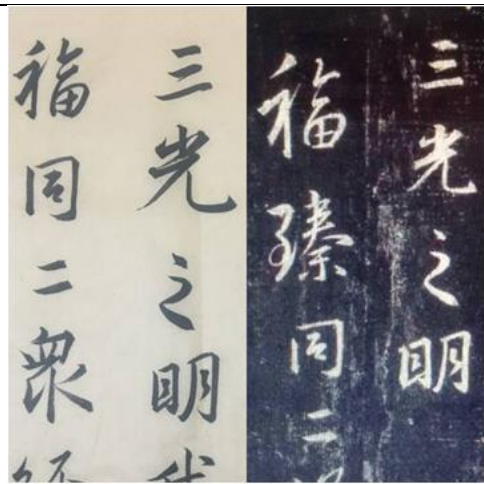 三光之明
福同二衆
三光之明
福臻同二